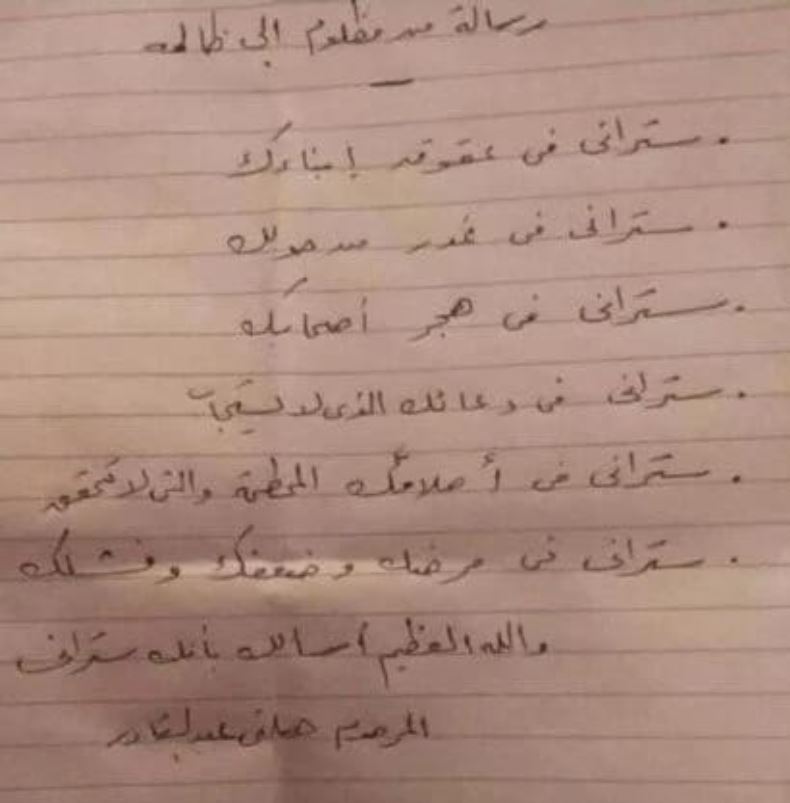 رسالة من مظلوم الى ظالمه
. ستراني في عقوق إبناءك
. ستراني في غدر من حولك
. ستراني في هجر أصحابك
. ستراني في دعائك الذي لا يستجاب
. ستراني في أحلامك المحطمة والتي لا تتحقق
. ستراني في مرضك وضعفك وفشلك
والله العظيم اسالك بأنك ستراني
المرحوم عبدالقادر